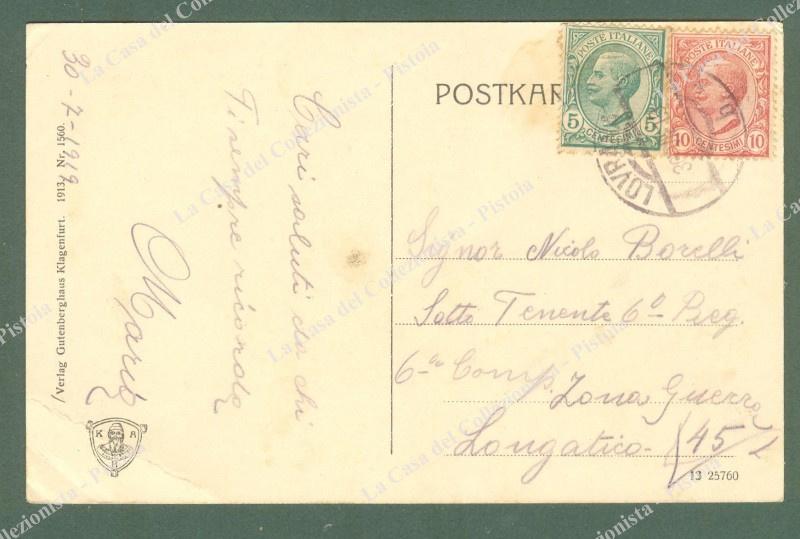 30-7-1919
Cari saluti da chi
Ti sempre ricorda
Mario
Verlag Gutenberghaus Klagenfurt. 1913. Nr. 1560.
K A
POSTKAR
POSTE ITALIANE
5 5
CENTESIMI
POSTE ITALIANE
10 10
CENTESIMI
LOVRA
Signor Nicolo Borelli
Sotto Tenente 6º Reg.
6ª Comp. Zona Guerra
Longatico - 45
13 25760
La Casa del Collezionista - Pistoia